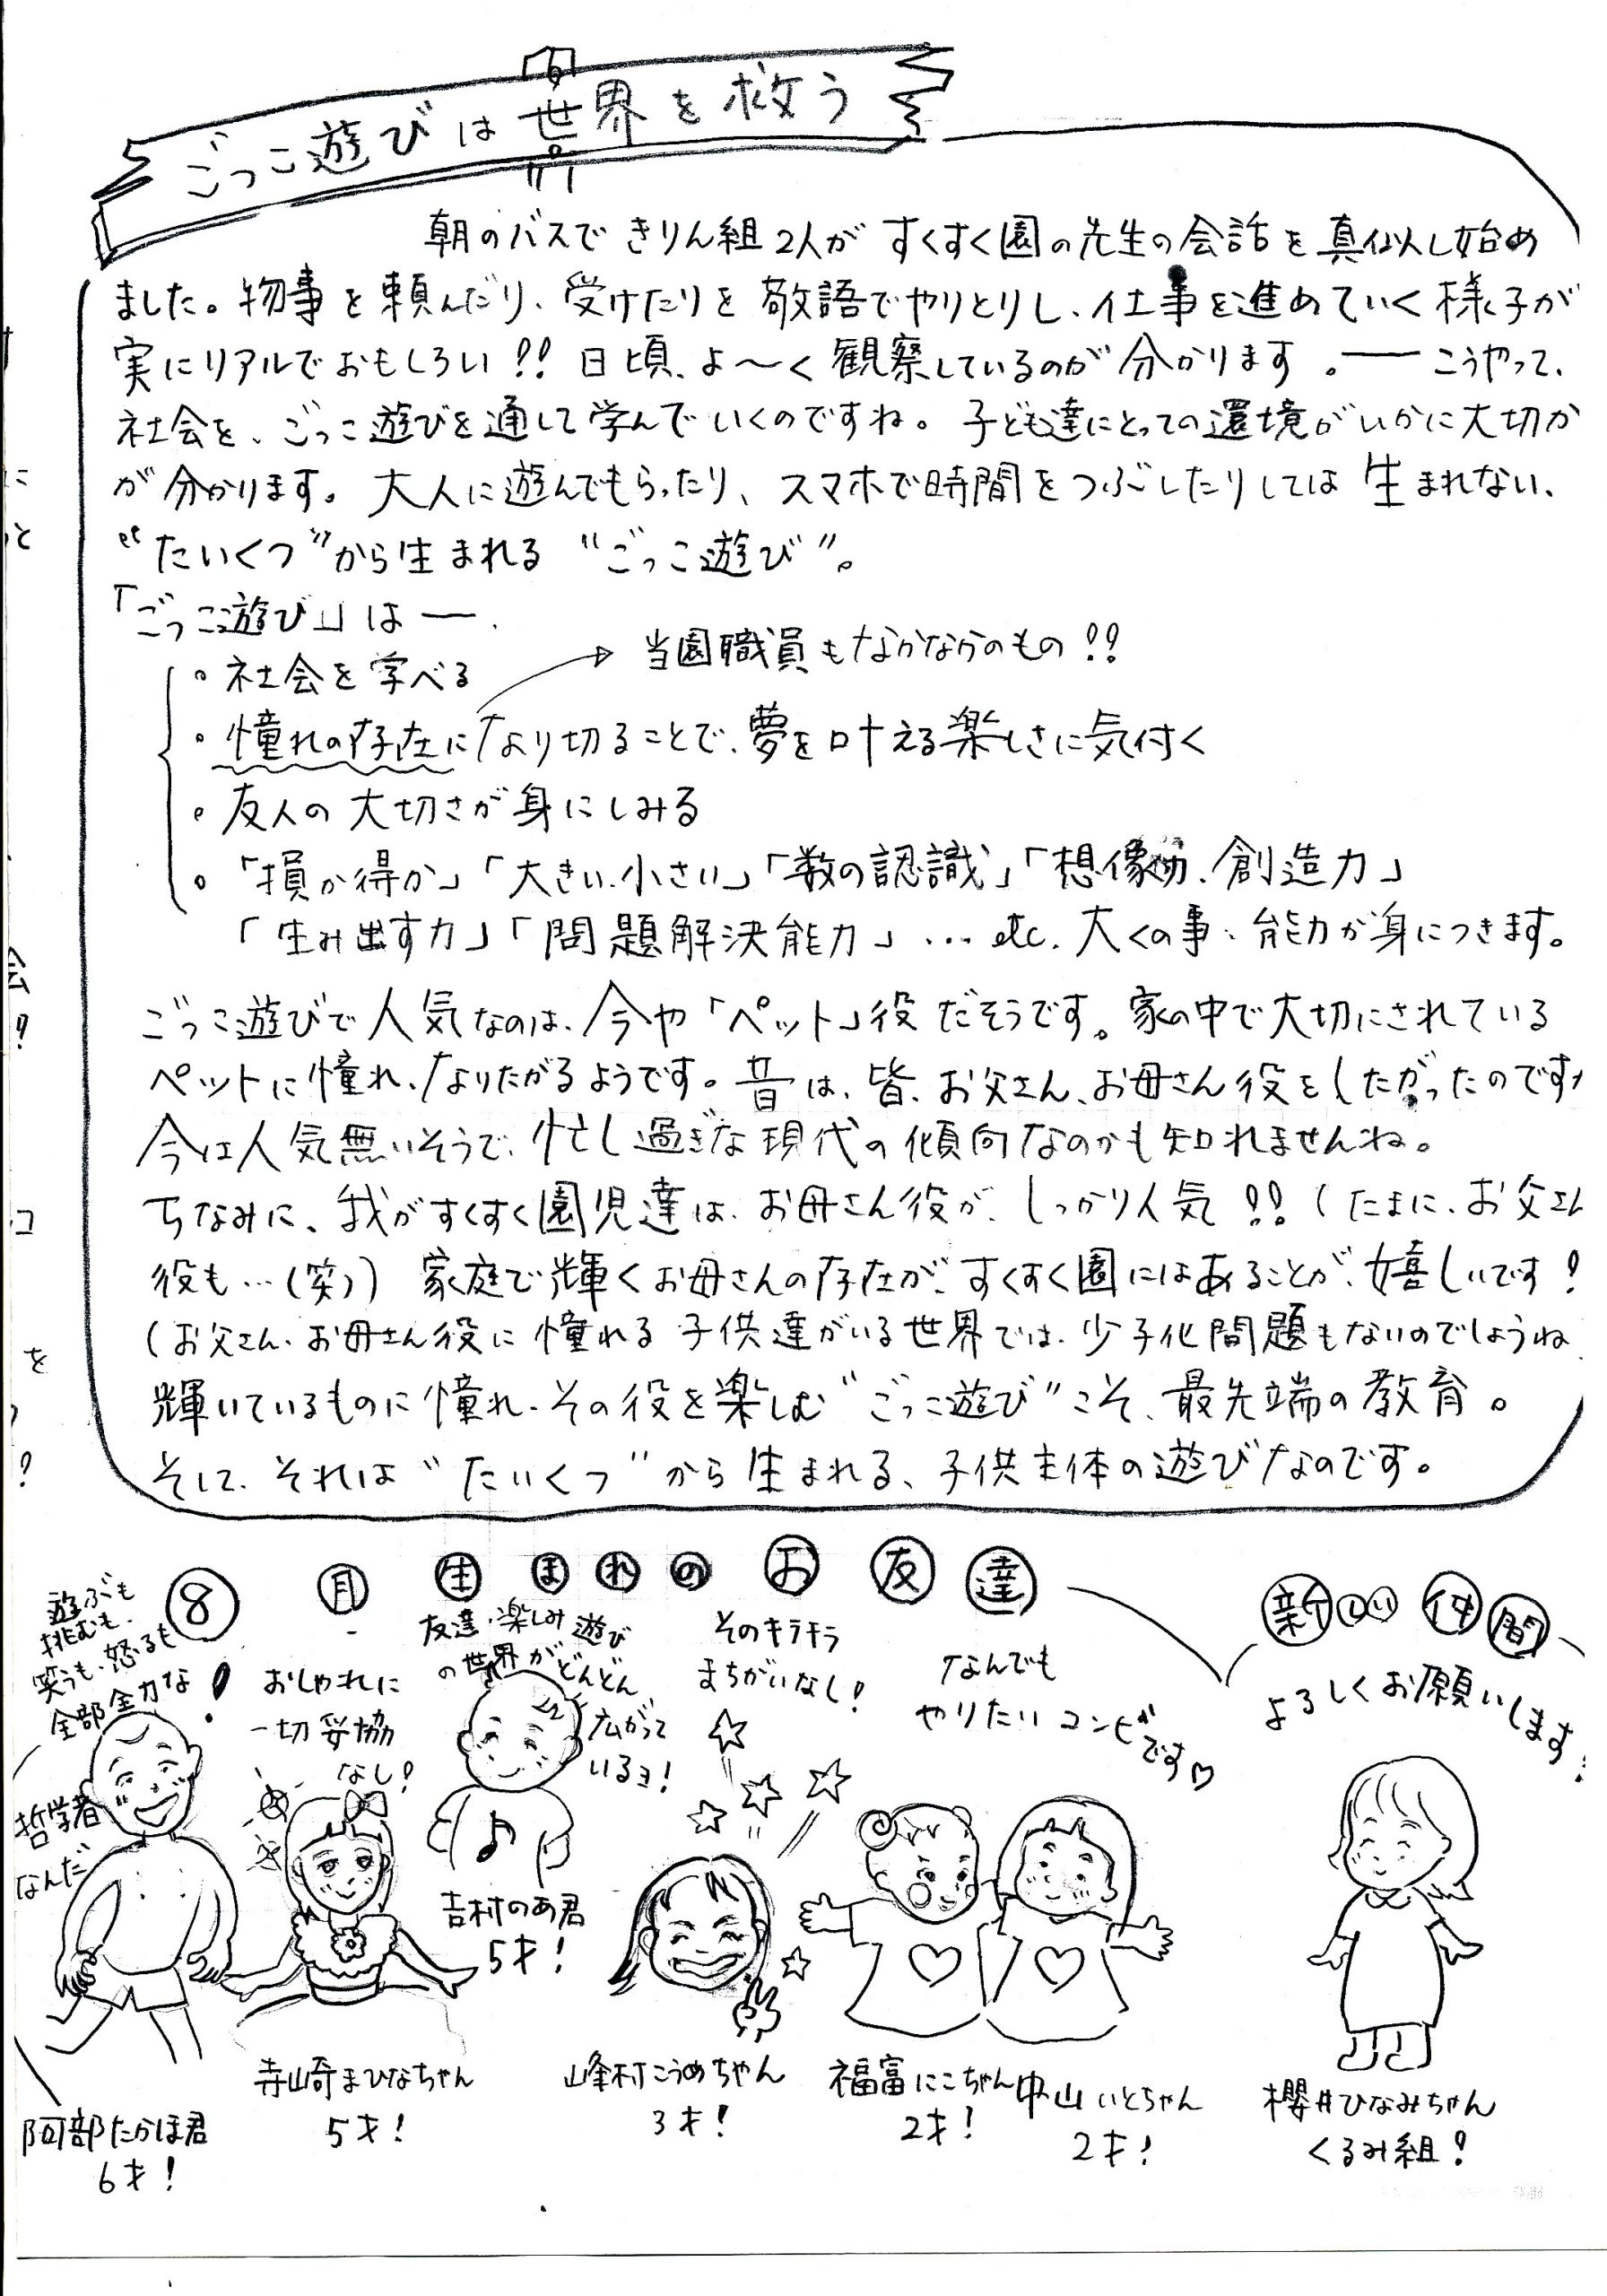 ごっこ遊びは世界を救う
朝のバスできりん組2人がすくすく園の先生の会話を真似し始め
ました。物事を頼んだり、受けたりを敬語でやりとりし、仕事を進めていく様子が
実にリアルでおもしろい!! 日頃、よ〜く観察しているのが分かります。― こうやって、
社会を、ごっこ遊びを通して学んでいくのですね。子ども達にとっての環境がいかに大切か
が分かります。大人に遊んでもらったり、スマホで時間をつぶしたりしては生まれない、
“たいくつ”から生まれる“ごっこ遊び”。
「ごっこ遊び」は―、
→ 当園職員もなかなからのもの!!
。社会を学べる
。憧れの存在になり切ることで、夢を叶える楽しさに気付く
。友人の大切さが身にしみる
。「損か得か」「大きい、小さい」「数の認識」「想像力、創造力」
「生み出す力」「問題解決能力」…etc. 大くの事、能力が身につきます。
ごっこ遊びで人気なのは、今や「ペット」役だそうです。家の中で大切にされている
ペットに憧れ、なりたがるようです。昔は、皆、お父さん、お母さん役をしたがったのです
今は人気無いそうで、忙し過ぎな現代の傾向なのかも知れませんね。
ちなみに、我がすくすく園児達は、お母さん役が、しっかり人気!! (たまに、お父さん
役も…(笑)) 家庭で輝くお母さんの存在が、すくすく園にはあることが、嬉しいです!
(お父さん、お母さん役に憧れる子供達がいる世界では、少子化問題もないのでしょうね
輝いているものに憧れ、その役を楽しむ“ごっこ遊び”こそ、最先端の教育。
そして、それは“たいくつ”から生まれる、子供主体の遊びなのです。
8月生まれのお友達
遊ぶも
挑むも、
笑うも、怒るも
全部全力な!
哲学者
なんだ
阿部たかほ君
6才!
おしゃれに
一切妥協
なし!
寺崎まひなちゃん
5才!
友達・楽しみ遊び
の世界がどんどん
広がって
いるヨ!
吉村のあ君
5才!
そのキラキラ
まちがいなし!
峰村こうめちゃん
3才!
なんでも
やりたいコンビです♡
福富にこちゃん
2才!
中山いとちゃん
2才!
新しい仲間
よろしくお願いします!
櫻井ひなみちゃん
くるみ組!